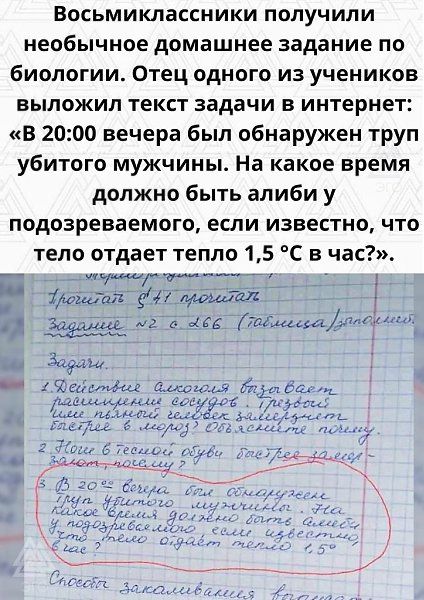 Восьмиклассники получили
необычное домашнее задание по
биологии. Отец одного из учеников
выложил текст задачи в интернет:
«В 20:00 вечера был обнаружен труп
убитого мужчины. На какое время
должно быть алиби у
подозреваемого, если известно, что
тело отдает тепло 1,5 °С в час?».
Прочитать § 41 прочитать
Задание №2 с 266 (таблица) заполнить
Задачи.
1. Действие алкоголя вызывает
расширение сосудов. Трезвый
или пьяный человек замерзнет
быстрее в мороз? Объясните почему.
2. Ноги в тесной обуви быстрее замер-
зают, почему?
3. В 20⁰⁰ вечера был обнаружен
труп убитого мужчины. На
какое время должно быть алиби
у подозреваемого, если известно,
что тело отдает тепло 1,5°
в час?
Способы закаливания